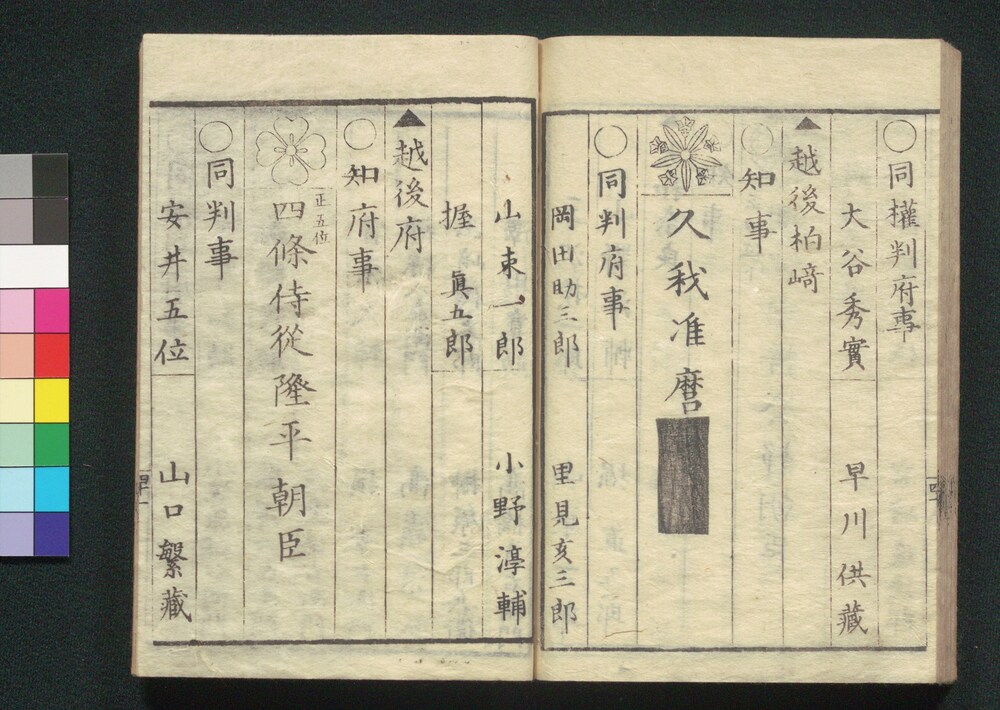 ○同權判府事
大谷秀實
早川供藏
▲越後柏﨑
○知事
久我准麿
○同判府事
岡田助三郎
里見亥三郎
山東一郎
小野淳輔
握眞五郎
▲越後府
○知府事
正五位
四條侍從隆平朝臣
○同判事
安井五位
山口繁藏
四十一